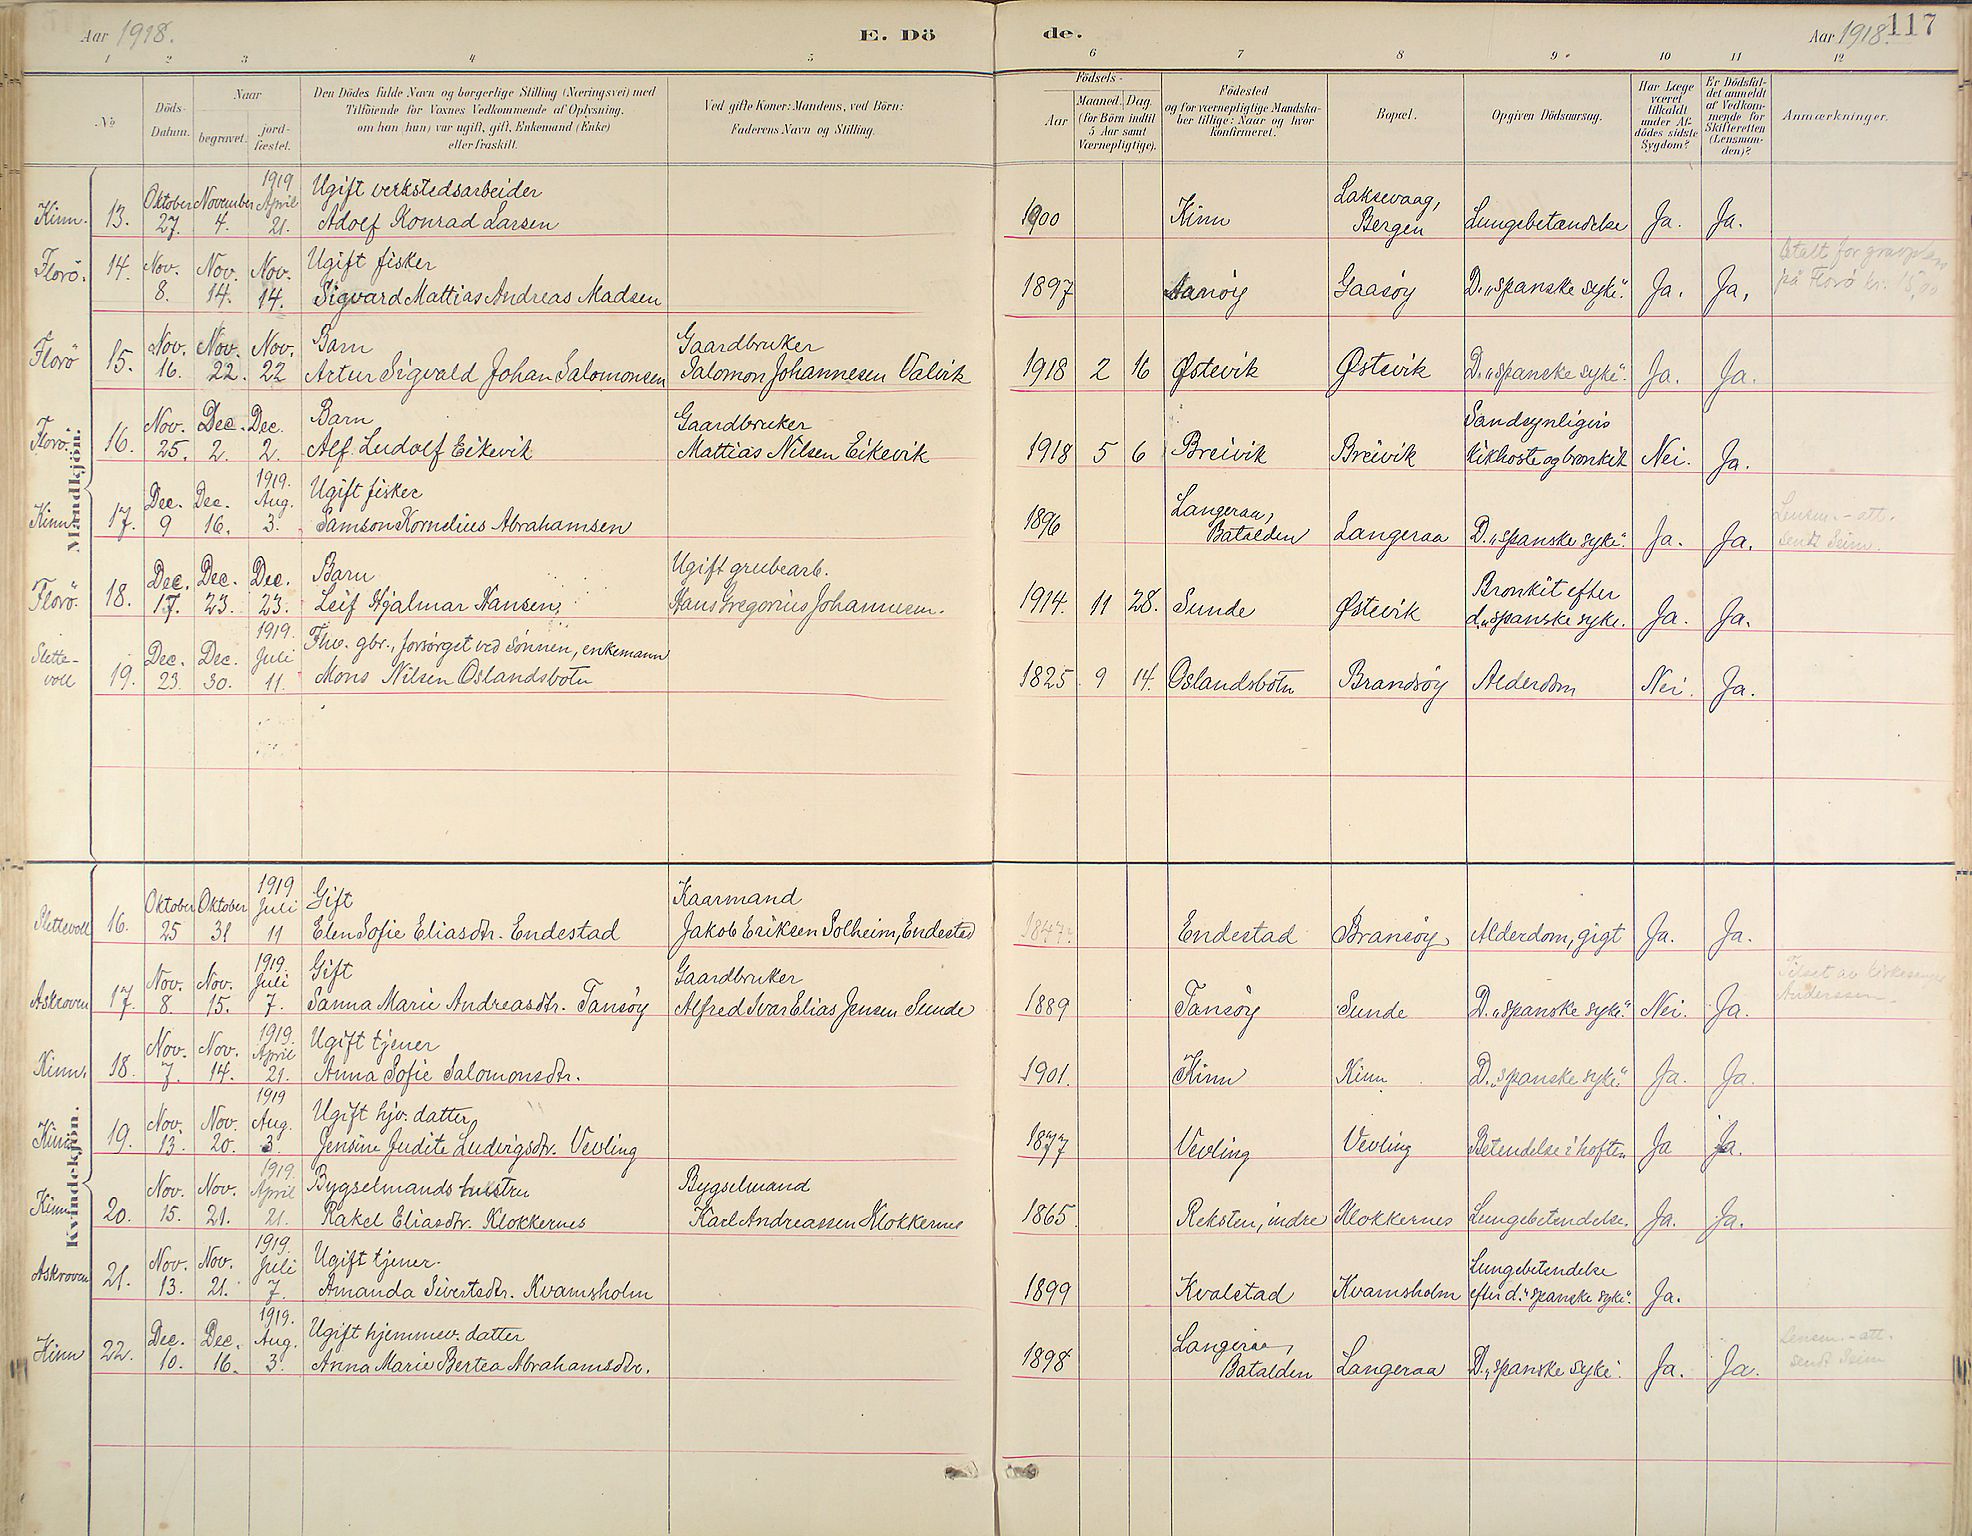 Aar 1918.
E. Dö
de.
Aar 1918.
117
1 2 3 4 5 6 7 8 9 10 11 12
No
Döds-Datum.
Naar
begravet.
jord-fæstet.
Den Dödes fulde Navn og borgerlige Stilling (Næringsvei) med
Tilföiende for Voxnes Vedkommende af Oplysning,
om han (hun) var ugift, gift, Enkemand (Enke)
eller fraskilt.
Ved gifte Koner: Mandens, ved Börn:
Faderens Navn og Stilling.
Födsels-
Aar
Maaned. Dag.
(for Börn indtil
5 Aar samt
Værnepligtige).
Födested
og for værnepligtige Mandska-
ber tillige: Naar og hvor
konfirmeret.
Bopæl.
Opgiven Dödsaarsag.
Har Læge
været
tilkaldt
under Af-
dödes sidste
Sygdom?
Er Dödsfal-
det anmeldt
af Vedkom-
mende for
Skifteretten
(Lensman-
den)?
Anmærkninger.
Mandkjön.
Kinn. 13. Oktober 27. November 4. 1919 April 21. Ugift verkstedsarbeider
Adolf Konrad Larsen 1900 Kinn Laksevaag, Bergen Lungebetændelse Ja. Ja.
Florö. 14. Nov. 8. Nov. 14. Nov. 14. Ugift fisker
Sigvard Mattias Andreas Madsen 1897 Aanøy Gaasøy D. „spanske syke". Ja. Ja. Betalt for gravplass
på Florø kr. 15,00
Florö 15. Nov. 16. Nov. 22. Nov. 22 Barn
Artur Sigvald Johan Salomonsen Gaardbruker
Salomon Johannesen Valvik 1918 2 16 Østevik Østevik D. „spanske syke". Ja. Ja.
Florö. 16. Nov. 25. Dec. 2. Dec. 2. Barn
Alf Ludolf Eikevik Gaardbruker
Mattias Nilsen Eikevik 1918 5 6 Breivik Breivik Sandsynligvis
kikhoste og bronkit Nei. Ja.
Kinn. 17. Dec. 9 Dec. 16. 1919. Aug. 3. Ugift fisker
Samson Kornelius Abrahamsen 1896 Langeraa, Batalden Langeraa D. „spanske syke". Ja. Ja. Lensm.-att.
sendt Seim.
Florö. 18. Dec. 17. Dec. 23. Dec. 23. Barn
Leif Hjalmar Hansen, Ugift grubearb.
Hans Gregorius Johannesen. 1914. 11 28. Sunde Østevik Bronkit efter
d. „spanske syke. Ja. Ja.
Slette-voll 19. Dec. 23. Dec. 30. 1919. Juli 11. Fhv. gbr., forsørget ved sønnen, enkemann
Mons Nilsen Oslandsbotn 1825 9 14. Oslandsbotn Brandsøy Alderdom Nei. Ja.
Kvindekjön.
Slettevoll 16. Oktober 25 Oktober 31 1919 Juli 11 Gift
Elen Sofie Eliasdtr. Endestad Kaarmand
Jakob Eriksen Solheim, Endestad 1847. Endestad Bransøy Alderdom, gigt Ja. Ja.
Askroven 17. Nov. 8. Nov. 15. 1919. Juli 7. Gift
Sanna Marie Andreasdtr. Tansøy Gaardbruker
Alfred Ivar Elias Jensen Sunde 1889 Tansøy Sunde D. „spanske syke." Nei. Ja. av kirkesanger
Anderssen
Kinn. 18. Nov. 7. Nov. 14. 1919. April 21. Ugift tjener
Anna Sofie Salomonsdtr. 1901. Kinn Kinn D. „spanske syke". Ja. Ja.
Kinn 19. Nov. 13. Nov. 20. 1919 Aug. 3. Ugift hjv. datter
Jensine Judite Ludvigsdtr. Vevling 1877 Vevling Vevling Betendelse i hoften Ja Ja.
Kinn 20. Nov. 15. Nov. 21. 1919. April 21. Bygselmands hustru
Rakel Eliasdtr. Klokkernes Bygselmand
Karl Andreassen Klokkernes 1865 Reksten, indre Klokkernes Lungebetendelse. Ja. Ja.
Askroven 21. Nov. 13. Nov. 21. 1919. Juli 7. Ugift tjener.
Amanda Sivertsdtr. Kvamsholm 1899 Kvalstad Kvamsholm Lungebetendelse
efter d. "spanske syke". Ja.
Kinn 22. Dec. 10. Dec. 16. 1919. Aug. 3. Ugift hjemmev. datter
Anna Marie Bertea Abrahamsdtr. 1898 Langeraa, Batalden Langeraa D. „spanske syke". Ja. Ja. Lensm.-att.
sendt Seim